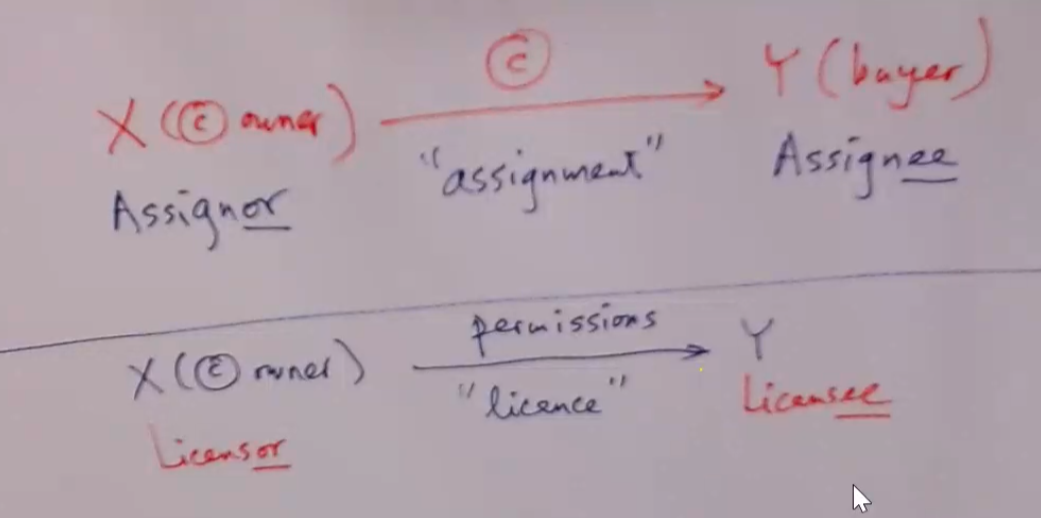 ©
X (© owner) Y (buyer)
"assignment"
Assignor Assignee
permissions
X (© owner) Y
"licence"
Licensor Licensee